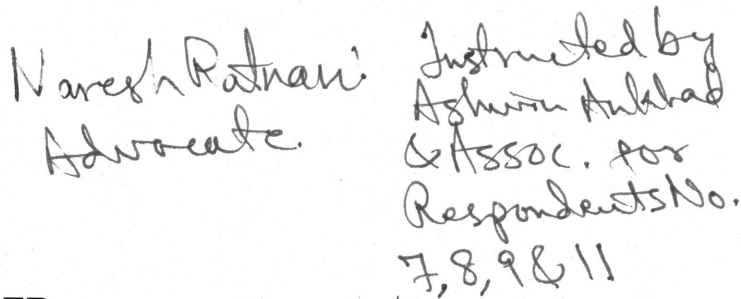 Naresh Ratnani
Advocate.
Instructed by
Ashwin Ankhad
& Assoc. for
Respondents No.
7, 8, 9 & 11